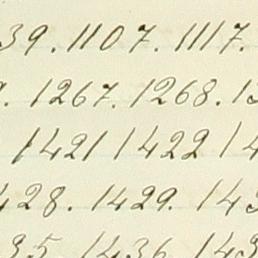 39. 1107. 1117.
. 1267. 1268. 1
1421 1422 14
428. 1429. 143
35. 1436. 143